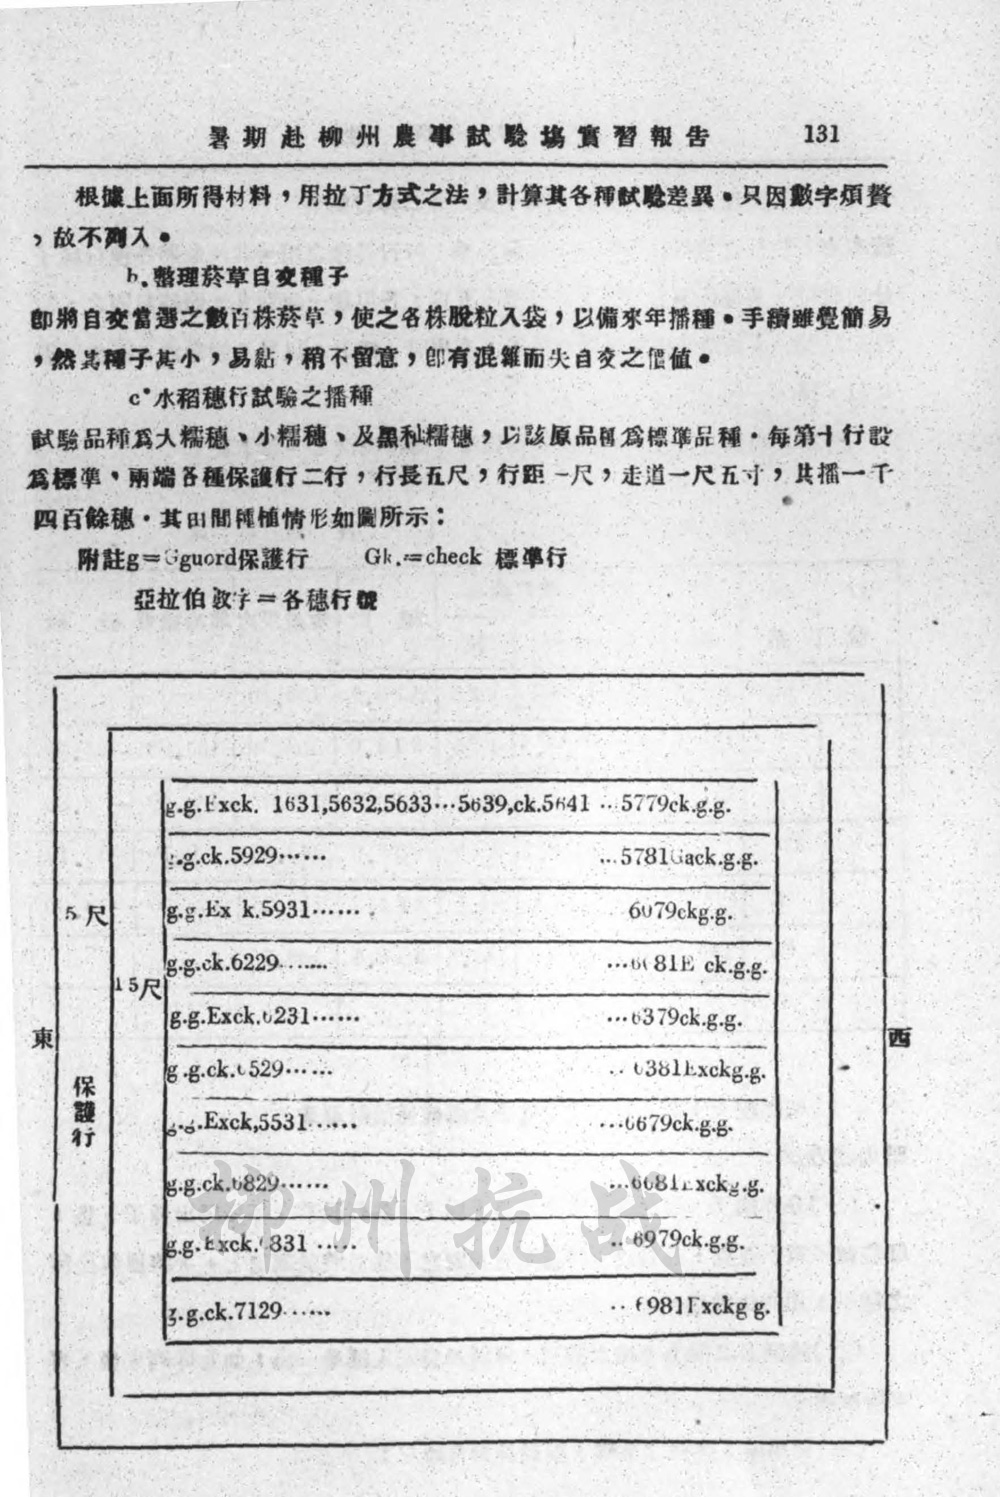 暑期赴柳州農事試驗場實習報告 131
根據上面所得材料，用拉丁方式之法，計算其各種試驗差異。只因數字煩贅
，故不列入。
b.整理菸草自交種子
卽將自交當選之數百株菸草，使之各株脫粒入袋，以備來年播種。手續雖覺簡易
，然其種子甚小，易黏，稍不留意，卽有混雜而失自交之價值。
c.水稻穗行試驗之播種
試驗品種爲大糯穗、小糯穗、及黑秈糯穗，以該原品種爲標準品種。每第十行設
爲標準，兩端各種保護行二行，行長五尺，行距一尺，走道一尺五寸，共播一千
四百餘穗。其田間種植情形如圖所示：
附註g=Gguord保護行 Gk.=check 標準行
亞拉伯數字=各穗行號
g.g.Exck. 1631,5632,5633…5639,ck.5641 …5779ck.g.g.
g.g.ck.5929…… …5781Gack.g.g.
g.g.Ex k.5931…… 6079ckg.g.
g.g.ck.6229…… …6081E ck.g.g.
g.g.Exck.6231…… …6379ck.g.g.
g.g.ck.6529…… …6381Exckg.g.
g.g.Exck,5531…… …6679ck.g.g.
g.g.ck.6829…… …6681Exckg.g.
g.g.Exck.6831…… …6979ck.g.g.
g.g.ck.7129…… …6981Exckg g.
5尺
15尺
東
西
保護行
柳州抗战